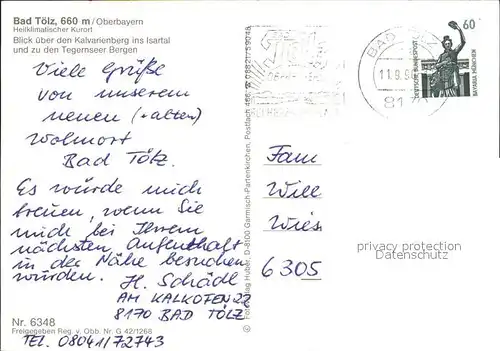 Bad Tölz, 660 m / Oberbayern
Heilklimatischer Kurort
Blick über den Kalvarienberg ins Isartal
und zu den Tegernseer Bergen
Viele Grüße
von unserem
neuen (+ alten)
Wohnort
Bad Tölz.
Es würde mich
freuen, wenn Sie
mich bei Ihrem
nächsten Aufenthalt
in der Nähe besuchen
würden. H. Schädl
AM KALKOFEN 22
8170 BAD TÖLZ
Nr. 6348
Freigegeben Reg. v. Obb. Nr. G 42/1268
TEL. 08041/72743
Huber, D-8100 Garmisch-Partenkirchen, Postfach 466
BAD
11.9.
817
60
DEUTSCHE BUNDESPOST
BAVARIA MÜNCHEN
Fam
Will
Wies
6305
privacy protection
Datenschutz